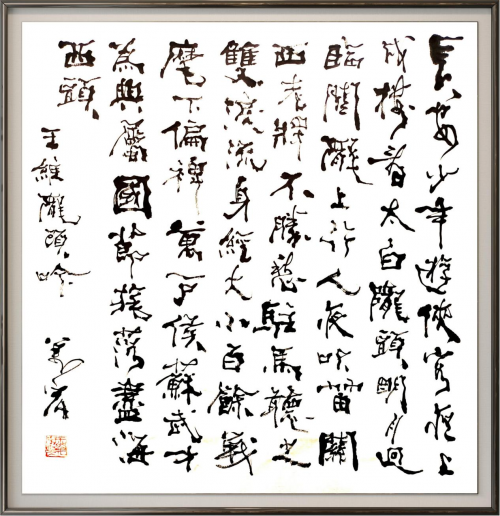 長安少年遊俠客夜上
戍樓看太白隴頭明月迥
臨關隴上行人夜吹笛關
西老將不勝愁駐馬聽之
雙淚流身經大小百餘戰
麾下偏裨萬戶侯蘇武才
為典屬國節旄落盡海
西頭
王維隴頭吟